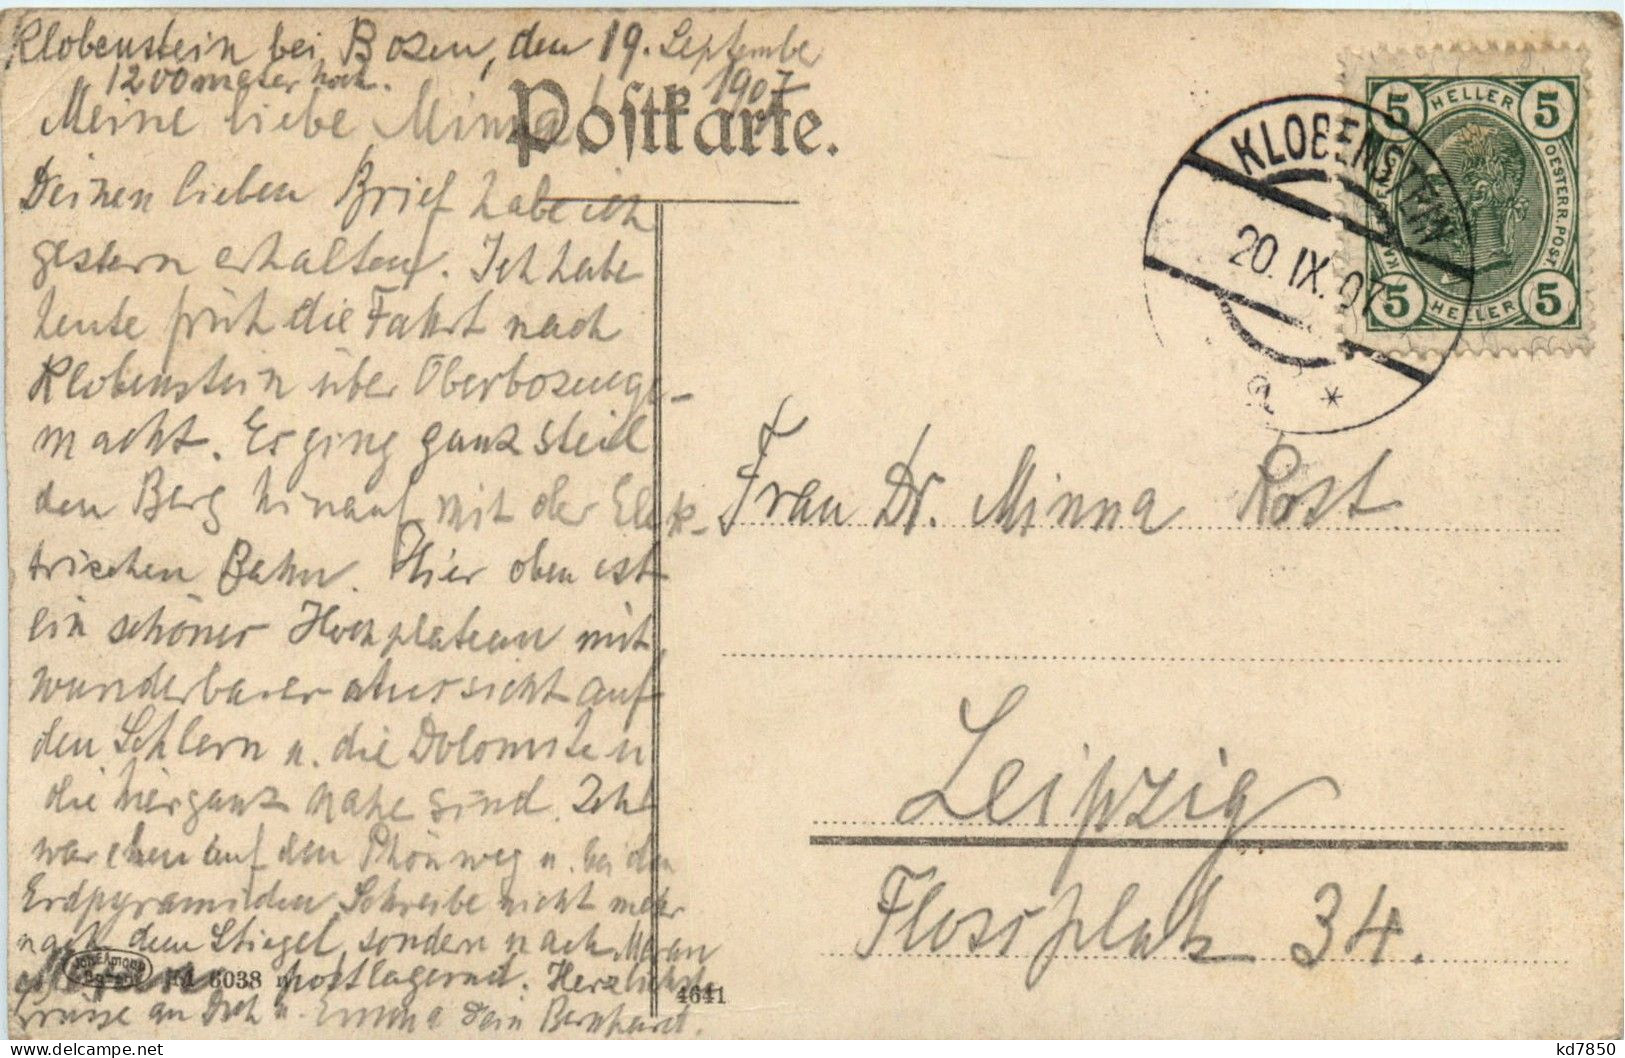 Klobenstein bei Bozen, den 19. September
1200 meter hoch. 1907
Meine liebe Minna!
Postkarte.
Deinen lieben Brief habe ich
gestern erhalten. Ich habe
heute früh die Fahrt nach
Klobenstein über Oberbozen ge-
macht. Es ging ganz steil
den Berg hinauf mit der Elek-
trischen Bahn. Hier oben ist
ein schöner Hochplateau mit
wunderbarer Aussicht auf
den Schlern u. die Dolomiten
die hier ganz nahe sind. Ich
war eben auf dem Phönweg u. bei den
Erdpyramiden. Schreibe nicht mehr
nach dem Stiegel, sondern nach Meran
postlagernd. Herzlichste
Grüsse an Dich u. Emma Dein Bernhard.
Joh. F. Amonn
Bozen
6038
4641
KLOBENSTEIN
20. IX. 07
a *
5 HELLER 5
OESTERR. POST.
5 HELLER 5
Frau Dr. Minna Rost
Leipzig
Flossplatz 34.
kd7850